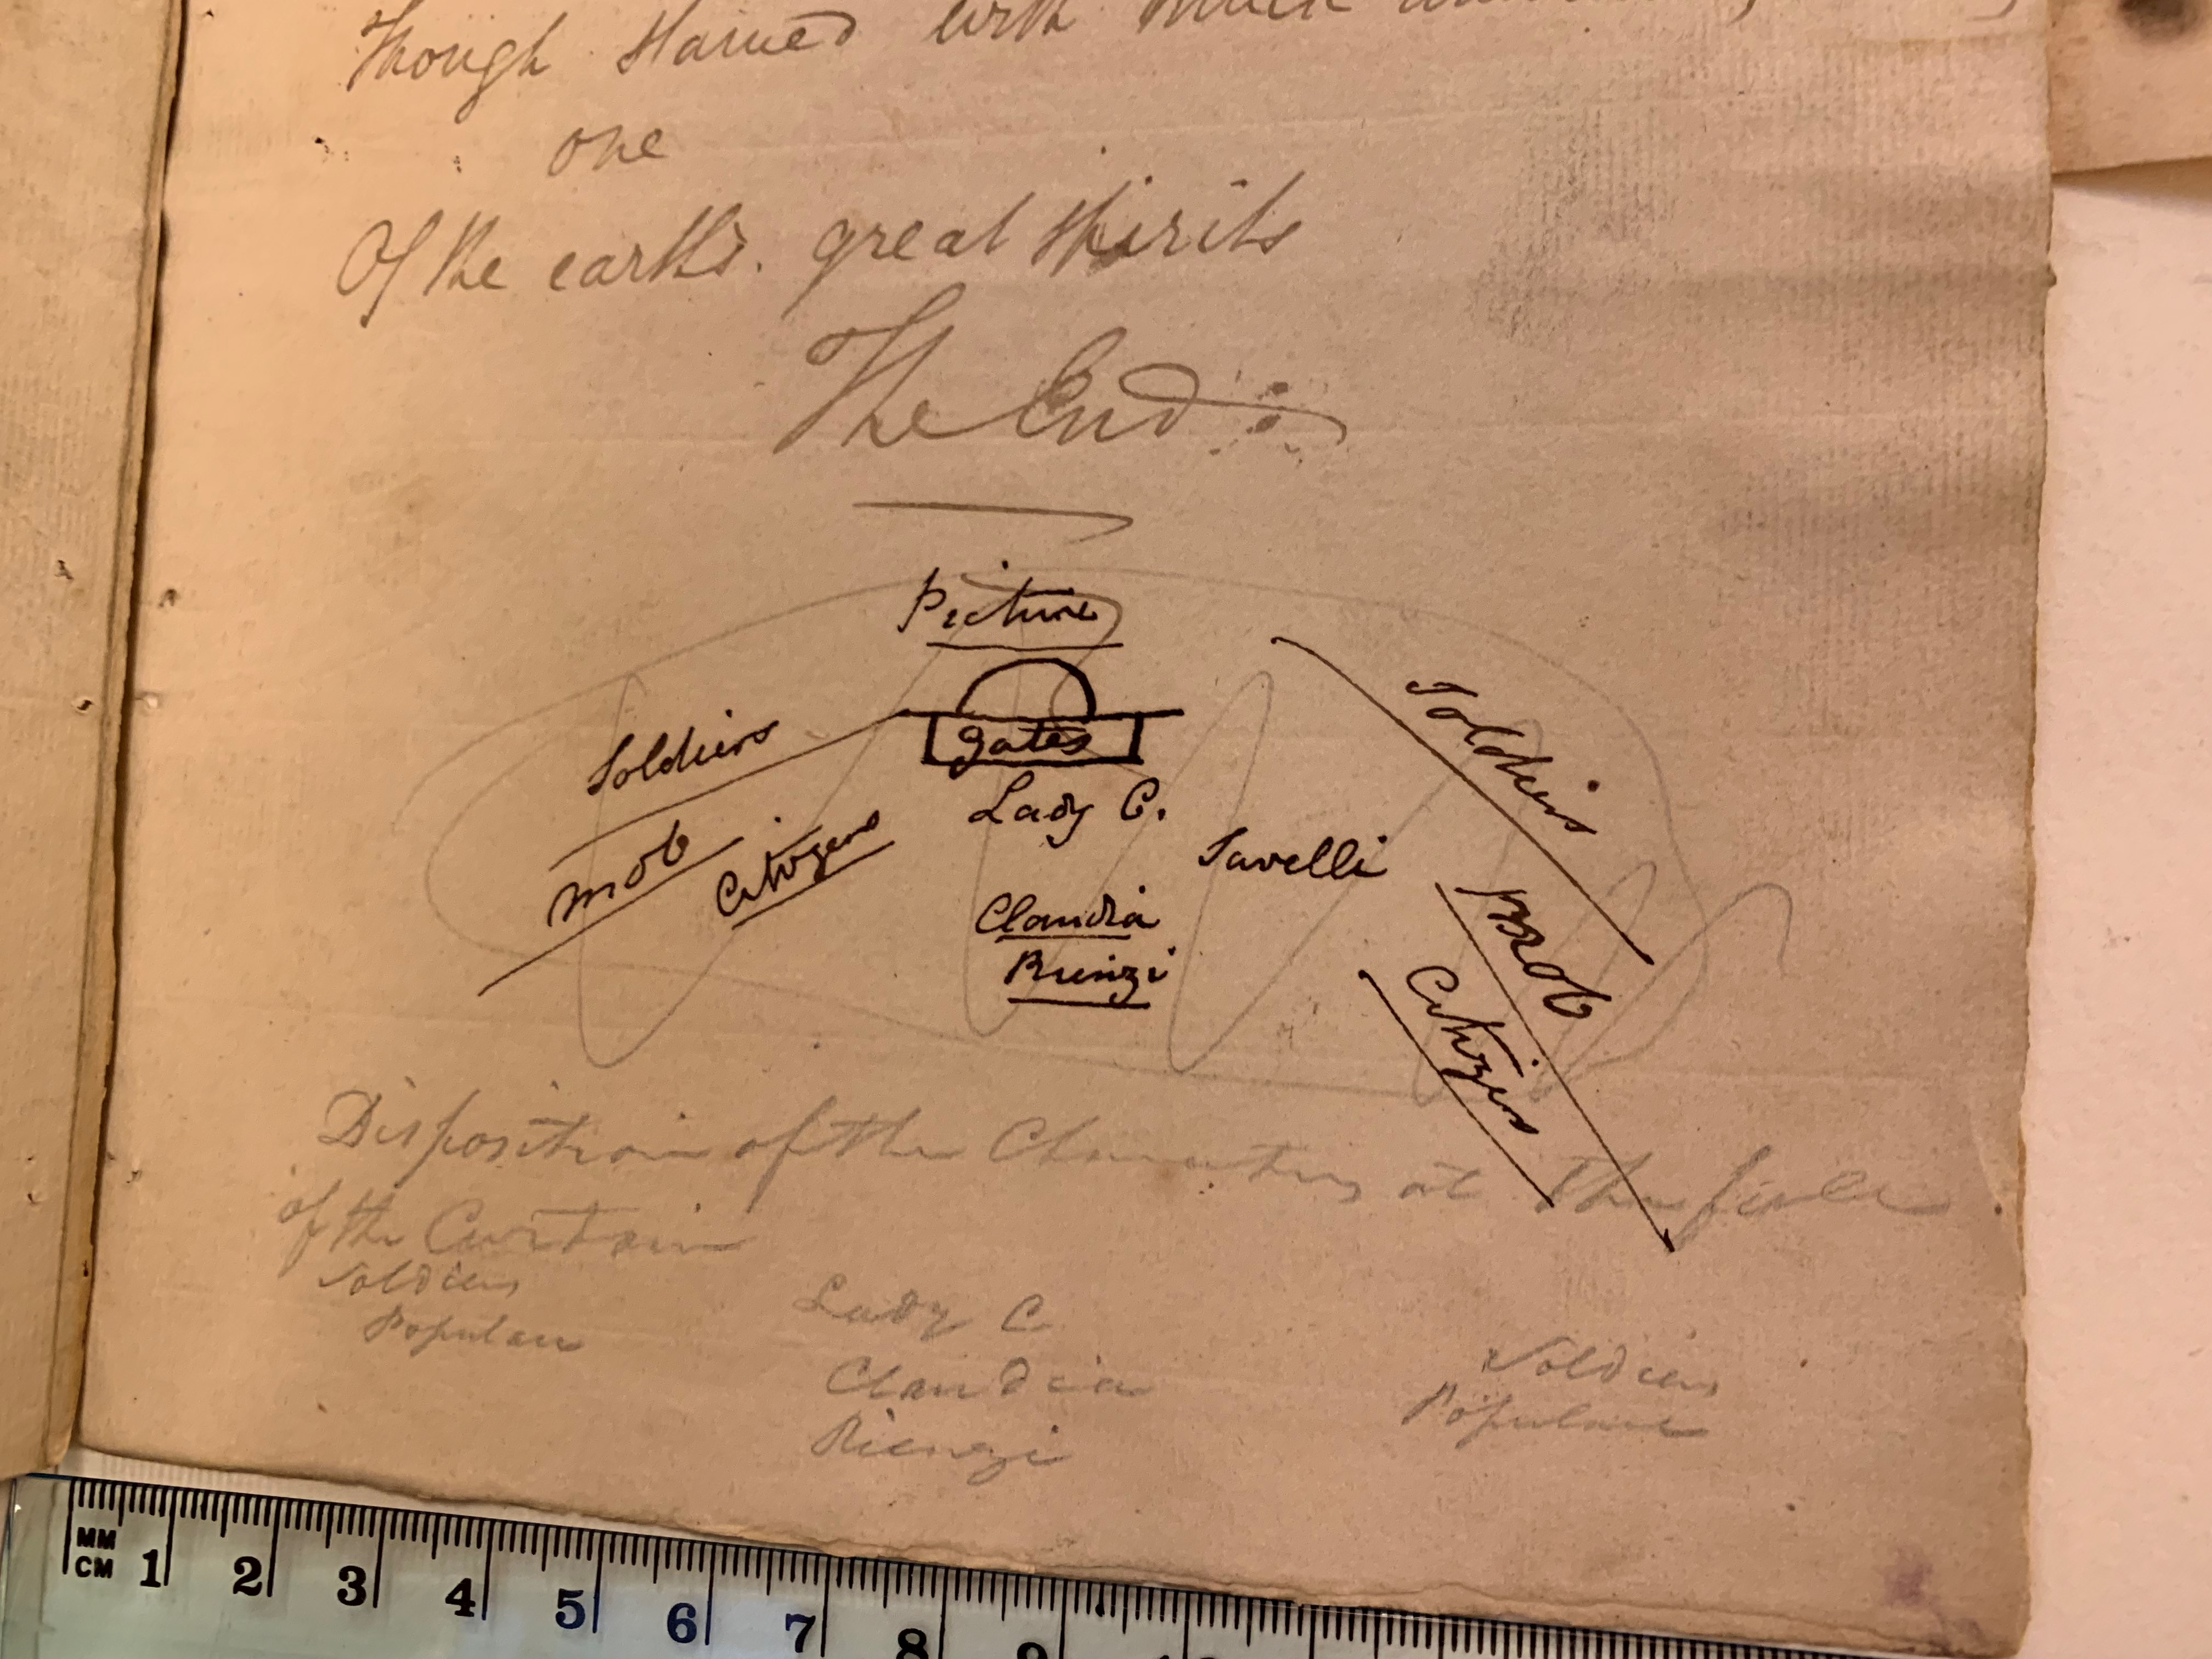 Though stained with much
one
Of the earth's great spirits
The End
Picture
gates
Soldiers
Soldiers
Lady C.
Savelli
mob
Citizens
mob
Claudia
Rienzi
Citizens
Disposition of the Characters at the fall
of the Curtain
Soldiers
Populace
Lady C
Claudia
Rienzi
Soldiers
Populace
MM
CM 1 2 3 4 5 6 7 8 9